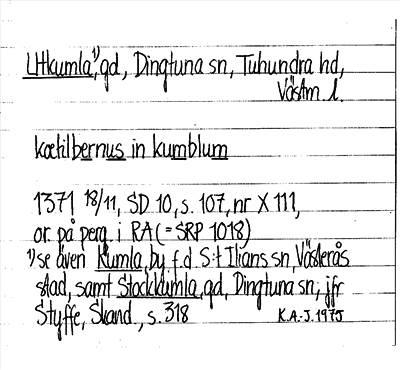 Litkumla,¹⁾ gd, Dingtuna sn, Tuhundra hd,
Västm l.
kætilbernus in kumblum
1371 18/11, SD 10, s. 107, nr X 111,
or. på perg. i RA (= SRP 1018)
¹⁾ se även Kumla, by, f.d. S:t Ilians sn, Västerås
stad, samt Stockkumla, gd, Dingtuna sn; jfr
Styffe, Skand., s. 318 K.A.-J. 1975